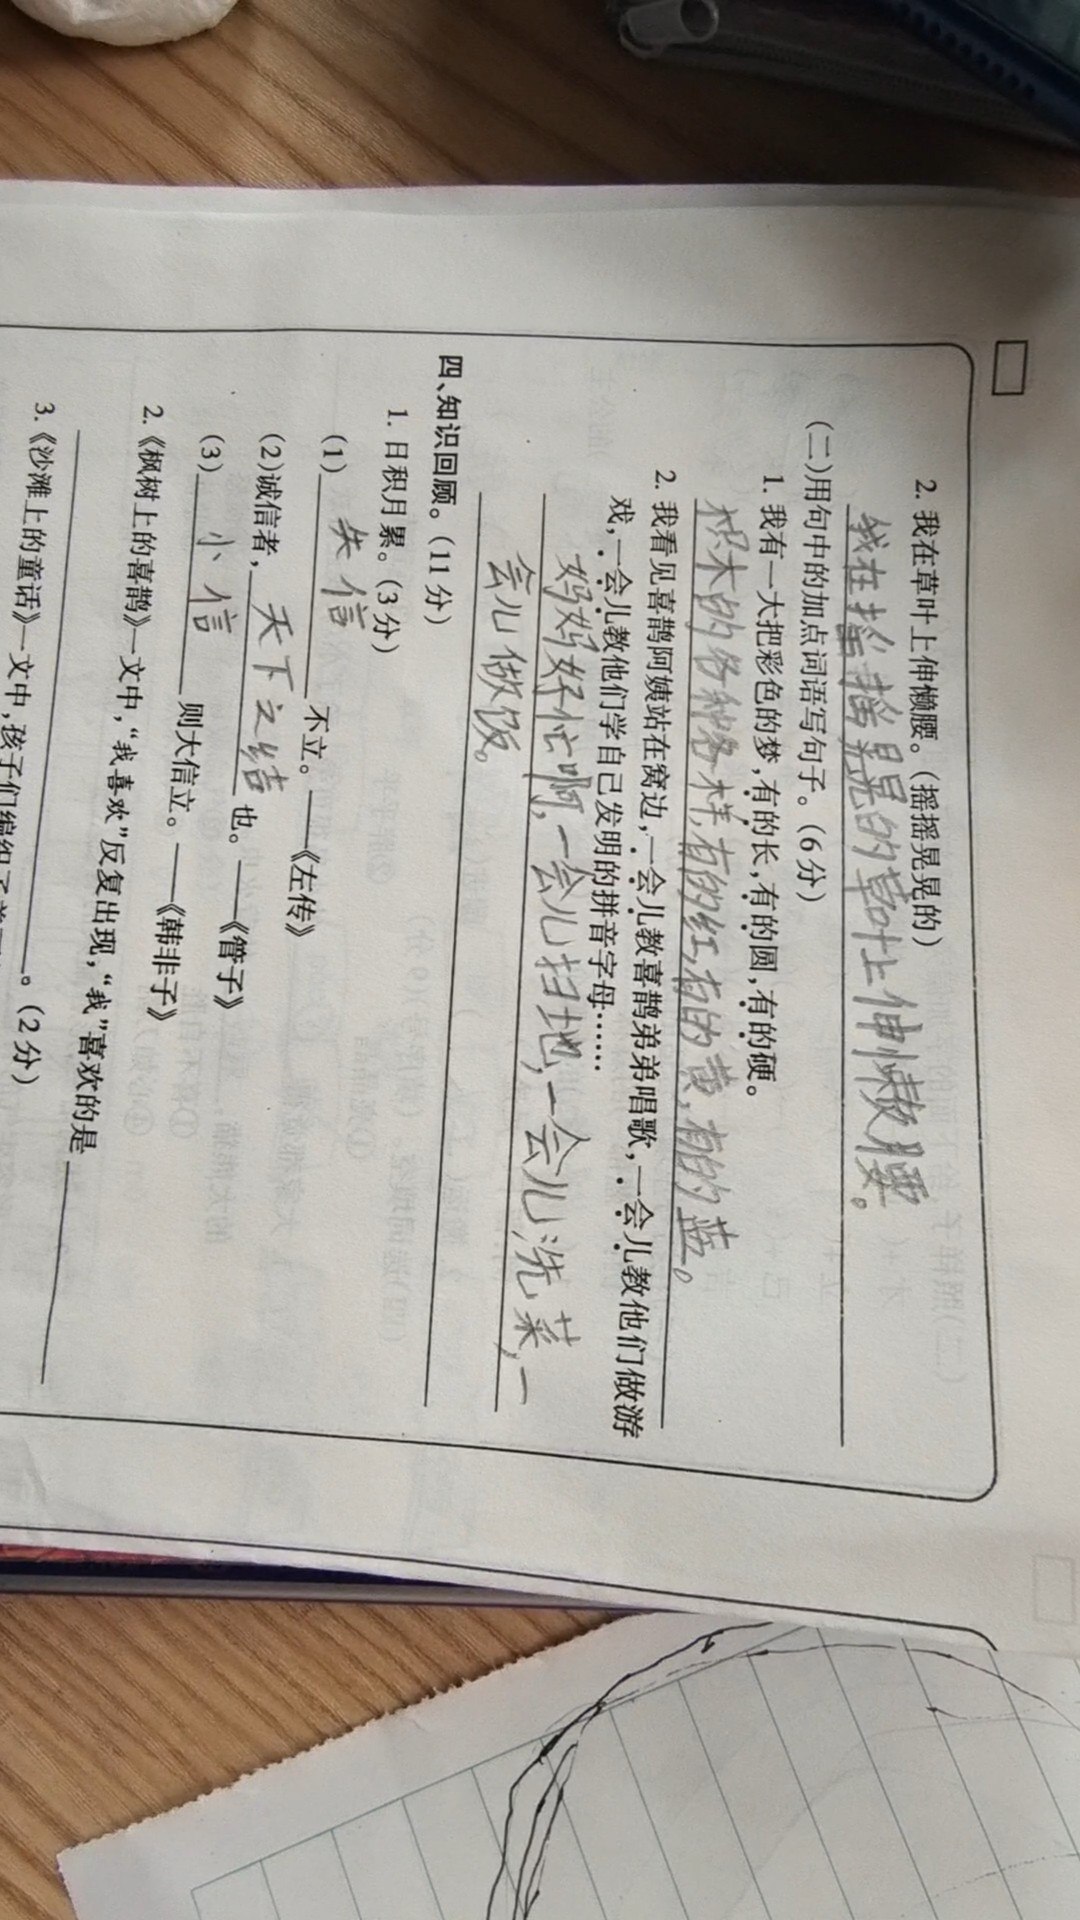 2. 我在草叶上伸懒腰。(摇摇晃晃的)
我在摇摇晃晃的草叶上伸懒腰。
(二)用句中的加点词语写句子。(6分)
1. 我有一大把彩色的梦,有的长,有的圆,有的硬。
积木的各种各样,有的红,有的黄,有的蓝。
2. 我看见喜鹊阿姨站在窝边,一会儿教喜鹊弟弟唱歌,一会儿教他们做游
戏,一会儿教他们学自己发明的拼音字母……
妈妈好忙啊,一会儿扫地,一会儿洗菜,一
会儿做饭。
四、知识回顾。(11分)
1. 日积月累。(3分)
(1) 失信 不立。——《左传》
(2)诚信者, 天下之结 也。——《管子》
(3) 小信 则大信立。——《韩非子》
2.《枫树上的喜鹊》一文中,“我喜欢”反复出现,“我”喜欢的是
。(2分)
3.《沙滩上的童话》一文中,孩子们编织了